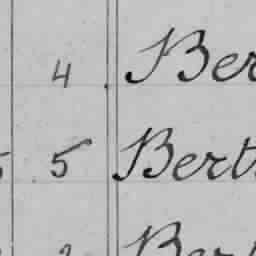 4 Ber
5 Bert
Ber